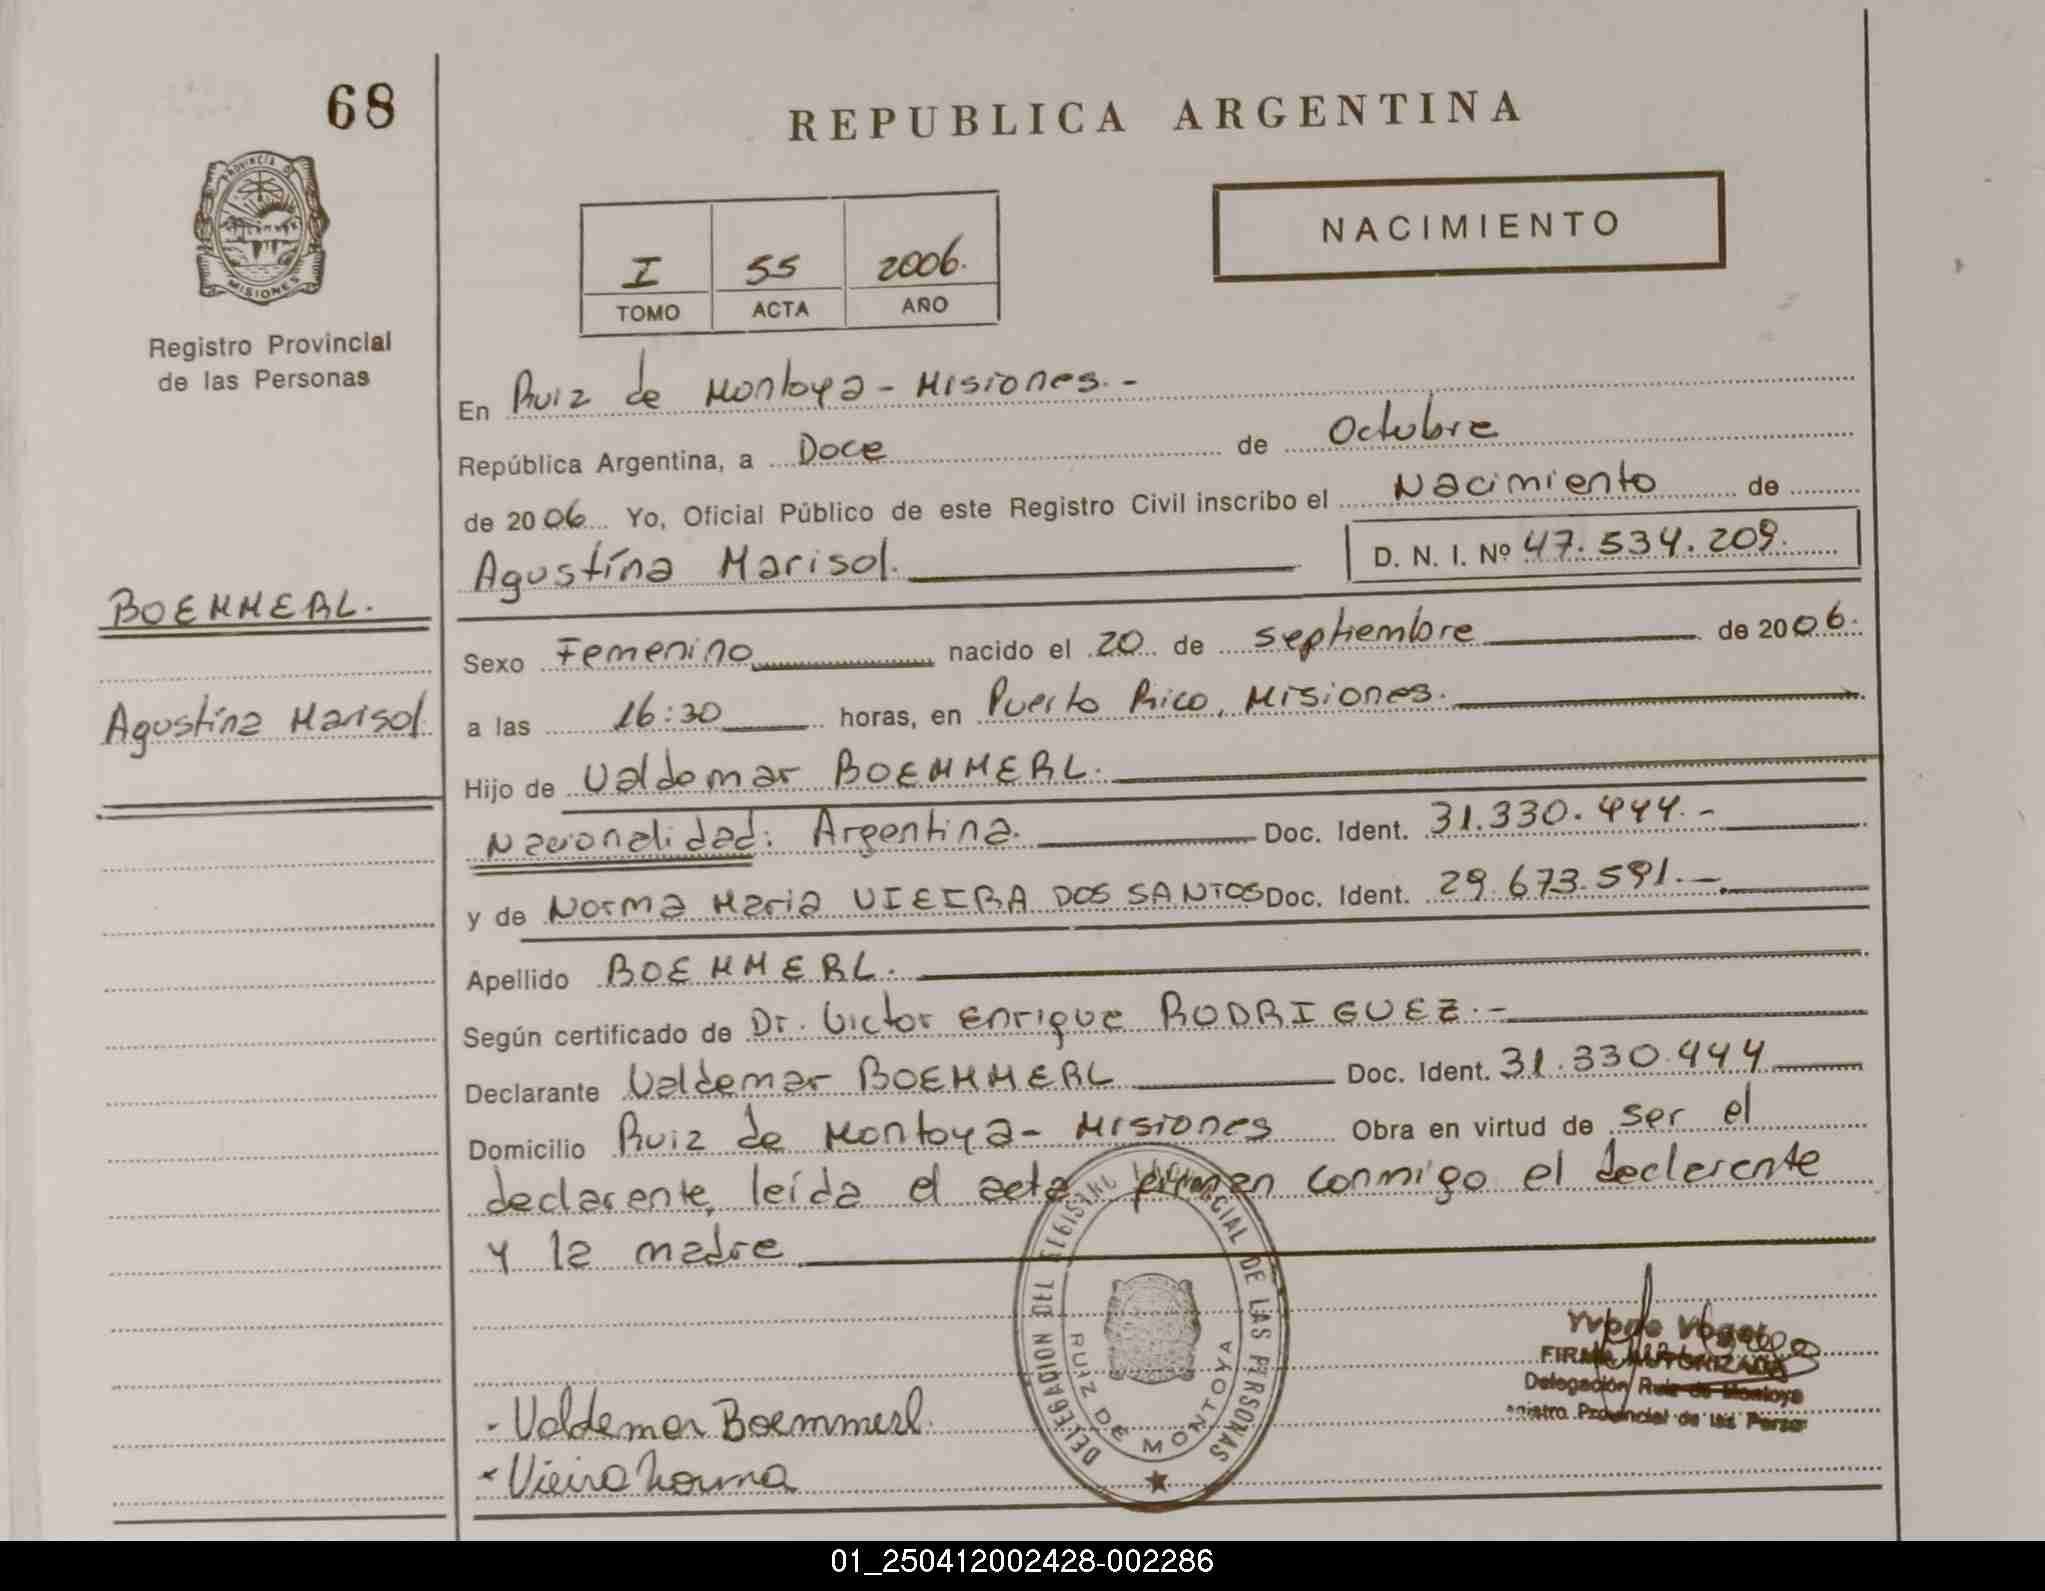 68
REPUBLICA ARGENTINA
PROVINCIA DE
MISIONES
Registro Provincial
de las Personas
I 55 2006.
TOMO ACTA AÑO
NACIMIENTO
En Ruiz de Montoya - Misiones. -
República Argentina, a Doce de Octubre
de 2006 Yo, Oficial Público de este Registro Civil inscribo el Nacimiento de
Agustína Marisol. D. N. I. Nº 47.534.209.
BOEMMERL.
Agustína Marisol.
Sexo Femenino nacido el 20 de septiembre de 2006.
a las 16:30 horas, en Puerto Rico, Misiones.
Hijo de Valdemar BOEMMERL.
Nacionalidad: Argentina. Doc. Ident. 31.330.444.-
y de Norma Maria VIEIRA DOS SANTOS Doc. Ident. 29.673.591.-
Apellido BOEMMERL.
Según certificado de Dr. Victor Enrique RODRIGUEZ.-
Declarante Valdemar BOEMMERL Doc. Ident. 31.330.444
Domicilio Ruiz de Montoya - Misiones Obra en virtud de ser el
declarente, leída el acta firman conmigo el declarente
y la madre
DELEGACION DEL REGISTRO PROVINCIAL DE LAS PERSONAS
RUIZ DE MONTOYA
FIRMA AUTORIZADA
Delegación Ruiz de Montoya
Provincial de las
- Valdemar Boemmerl.
- Vieira Norma
01_250412002428-002286